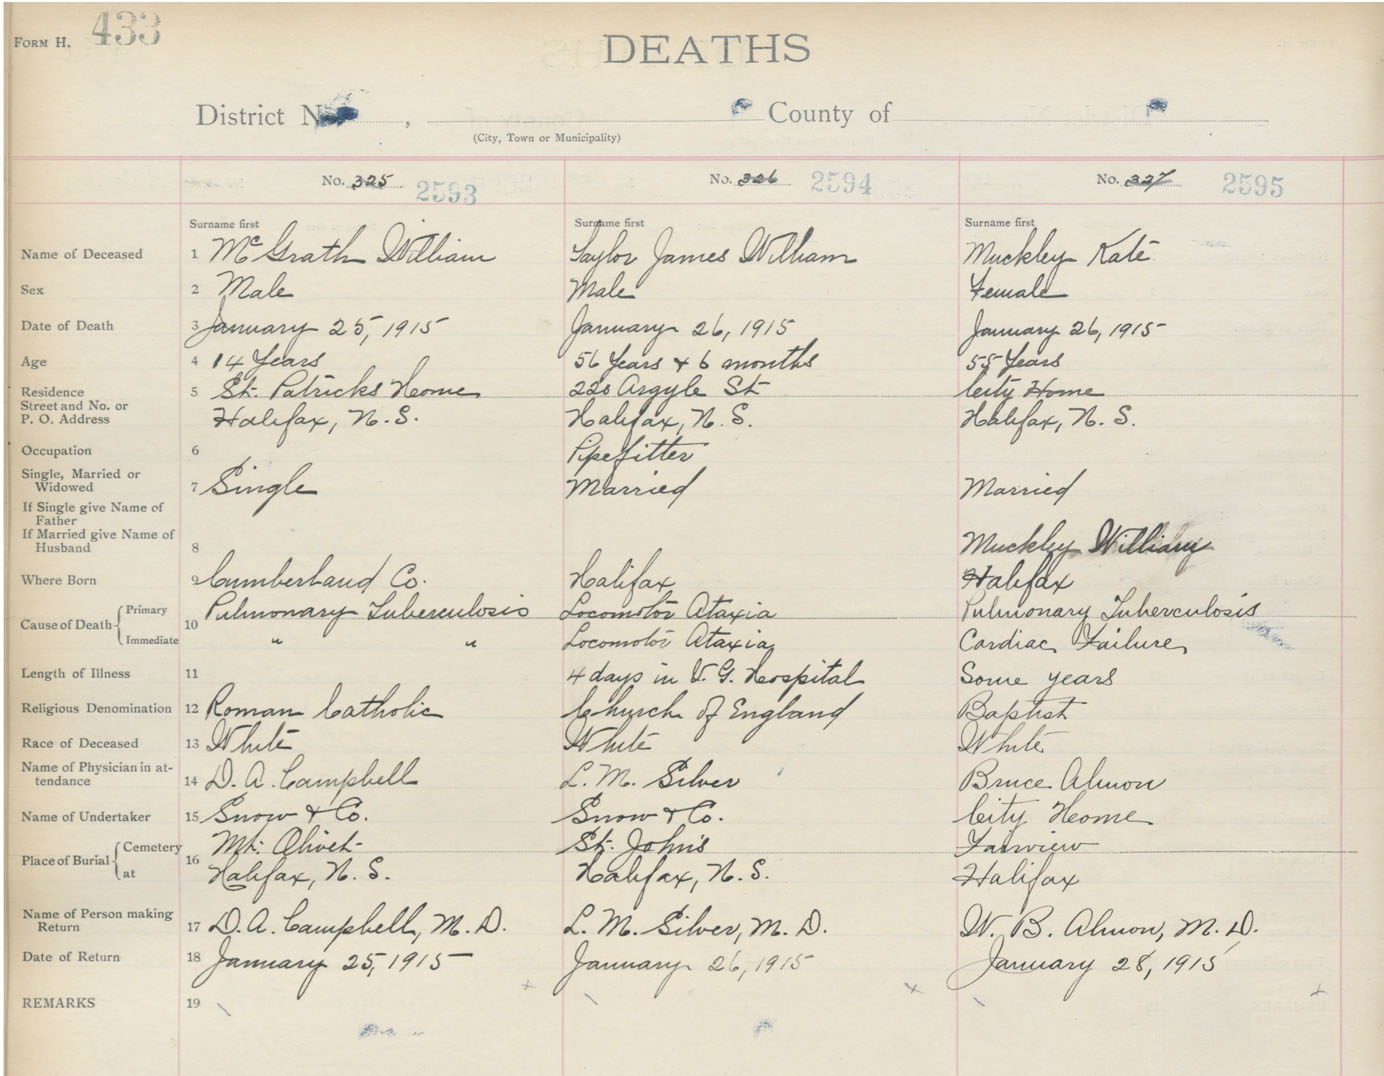 FORM H. 433
DEATHS
District N , County of
(City, Town or Municipality)
No. 325 2593 No. 326 2594 No. 327 2595
Surname first Surname first Surname first
Name of Deceased 1 McGrath William Taylor James William Muckley Kate
Sex 2 Male Male Female
Date of Death 3 January 25, 1915 January 26, 1915 January 26, 1915
Age 4 14 Years 56 Years & 6 months 55 Years
Residence 5 St. Patricks Home 220 Argyle St City Home
Street and No. or
P. O. Address Halifax, N. S. Halifax, N. S. Halifax, N. S.
Occupation 6 Pipefitter
Single, Married or
Widowed 7 Single Married Married
If Single give Name of
Father
If Married give Name of
Husband 8 Muckley William
Where Born 9 Cumberland Co. Halifax Halifax
Cause of Death 10 Primary Pulmonary Tuberculosis Locomotor Ataxia Pulmonary Tuberculosis
Immediate " " Locomotor Ataxia Cardiac Failure
Length of Illness 11 4 days in V. G. Hospital Some years
Religious Denomination 12 Roman Catholic Church of England Baptist
Race of Deceased 13 White White White
Name of Physician in at-
tendance 14 D. A. Campbell L. M. Silver Bruce Almon
Name of Undertaker 15 Snow & Co. Snow & Co. City Home
Place of Burial 16 Cemetery Mt. Olivet St. John's Fairview
at Halifax, N. S. Halifax, N. S. Halifax
Name of Person making
Return 17 D. A. Campbell, M. D. L. M. Silver, M. D. W. B. Almon, M. D.
Date of Return 18 January 25, 1915 January 26, 1915 January 28, 1915
REMARKS 19